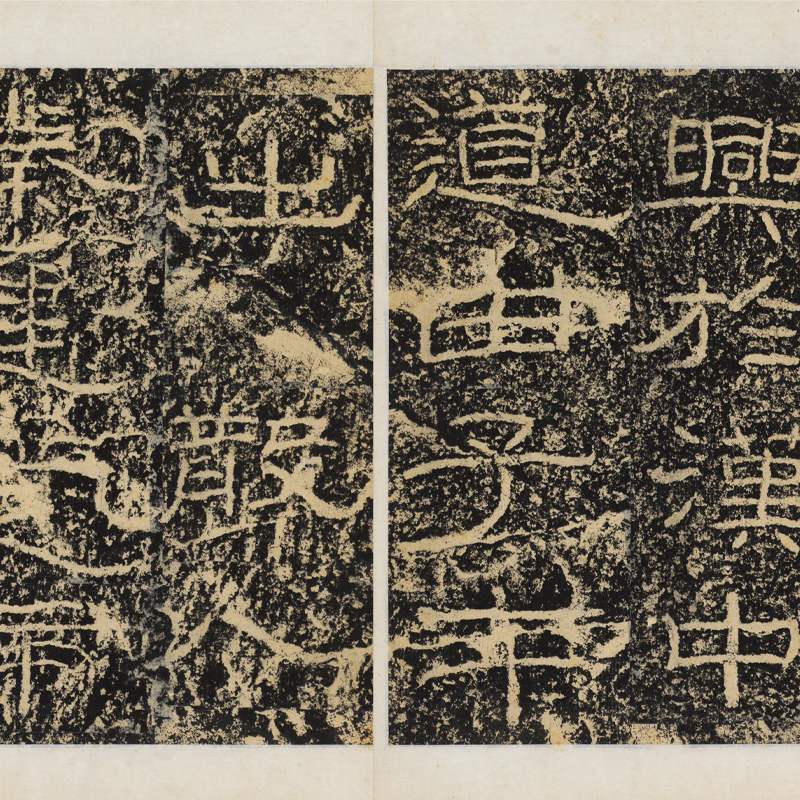 興於漢中
道由子午
出散入
秦建定帝